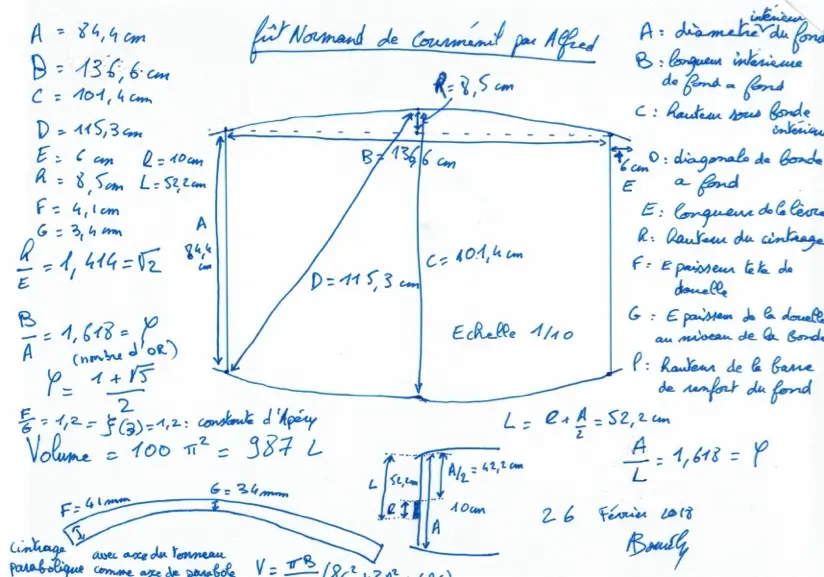 fût Normand de Courménil par Alfred
A = 84,4 cm
B = 136,6 cm
C = 101,4 cm
D = 115,3 cm
E = 6 cm l = 10 cm
R = 8,5 cm L = 52,2 cm
F = 4,1 cm
G = 3,4 cm
R/E = 1,414 = √2
B/A = 1,618 = φ
(nombre d'OR)
φ = (1 + √5)/2
F/G = 1,2 = ξ(3) = 1,2 : constante d'Apéry
Volume = 100 π² = 987 L
F = 41 mm
G = 34 mm
Cintrage avec axe du tonneau
parabolique comme axe de parabole
V = πB
R = 8,5 cm
B = 136,6 cm
6 cm
E
A
84,4
cm
D = 115,3 cm
C = 101,4 cm
Echelle 1/10
A : diamètre intérieur du fond
B : longueur intérieure
de fond a fond
C : hauteur sous bonde
intérieur
D : diagonale de bonde
a fond
E : longueur de la lèvre
R : hauteur du cintrage
F : Epaisseur tete de
douelle
G : Epaisseur de la douelle
au niveau de la Bonde
l : hauteur de la barre
de renfort du fond
L = l + A/2 = 52,2 cm
A/L = 1,618 = φ
L
52,2 cm
l
A/2 = 42,2 cm
10 cm
A
26 Février 2018